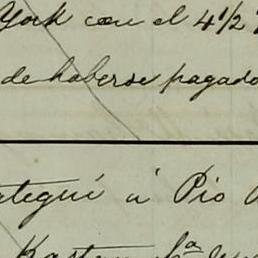 York con el 4 1/2 %
de haberse pagado
ategui á Pio